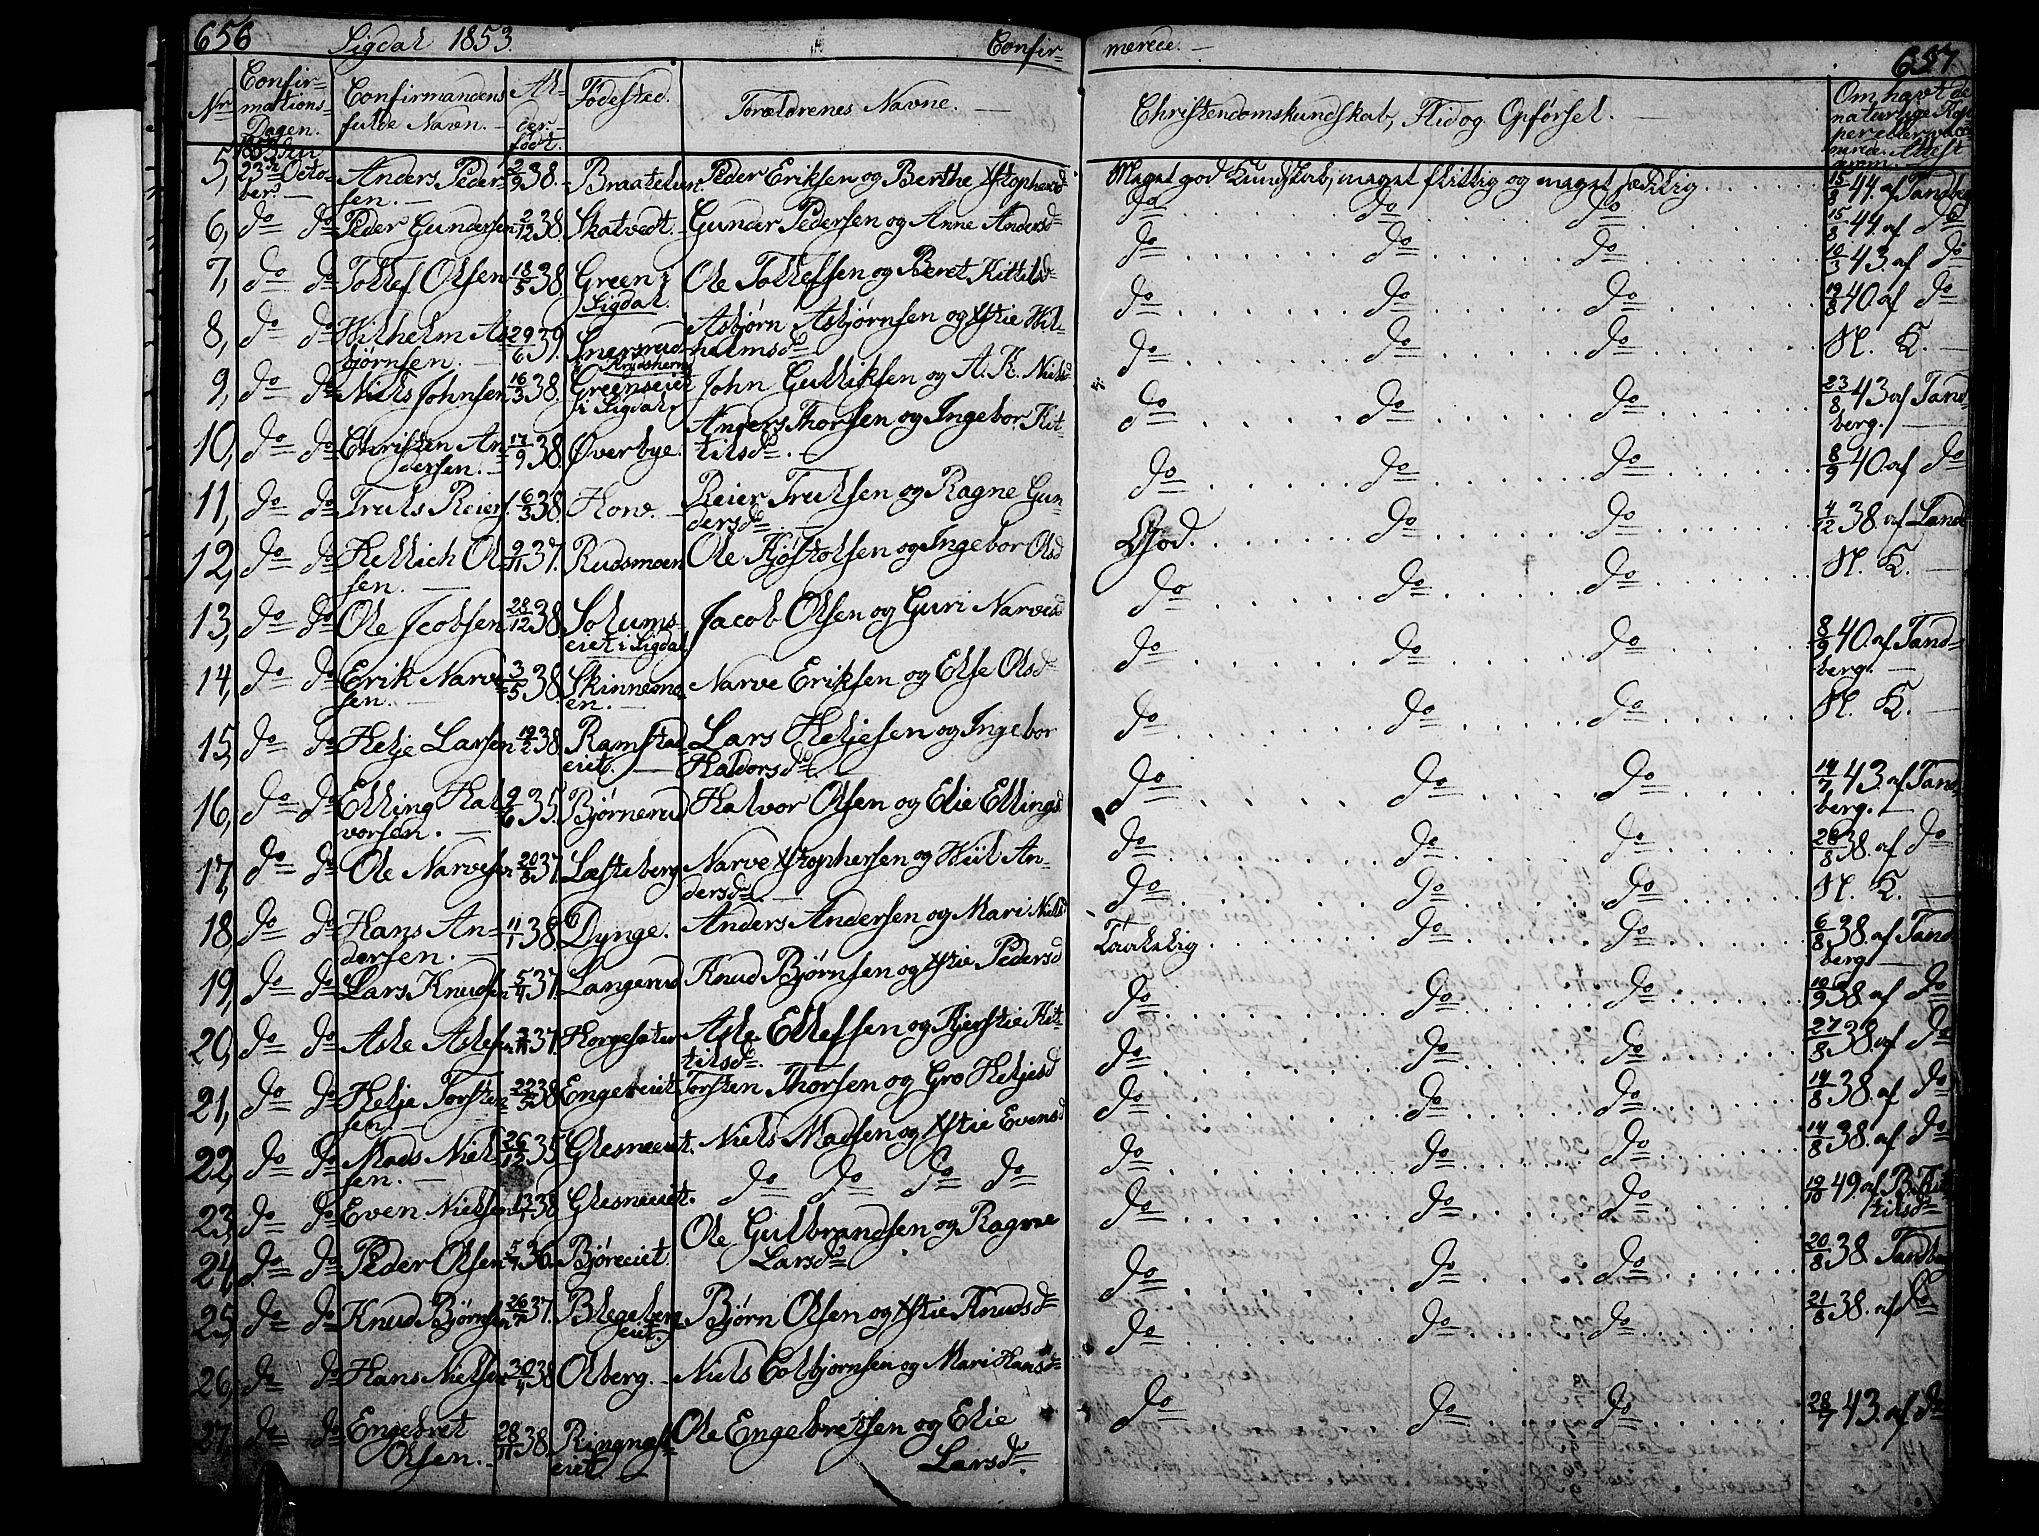 656 Sigdal 1853. Confir-
Nr Confir-mations-Dagen. Confirmandens fulde Navn. Al-der. født. Fødested. Forældrenes Navne.
5, 1853 den 23de Octo-ber. Anders Peder-sen. 2/9 38. Braatelun Peder Eriksen og Berthe Xstophersd
6, do do Peder Gundersen 2/12 38. Skatvedt. Gunder Pedersen og Anne Andersd
7, do do Tollef Olsen 18/5 38. Green i Sigdal. Ole Tollefsen og Beret Kittilsd
8, do do Wilhelm As-bjørnsen. 29/6 39. Snersrud Krydsherred Asbjørn Asbjørnsen og Xstie Wil-helmsd
9, do do Niels Johnsen 16/3 38. Greenseiet i Sigdal John Gulliksen og A. K. Nielsd
10, do do Christen An-dersen. 17/9 38. Øverbye. Anders Thorsen og Ingebor Kit-tilsd.
11, do do Truls Reiers. 6/3 38. Hovv. Reier Trulsen og Ragne Gun-dersd
12, do do Hellich Ol-sen. 9/11 37. Rudsmoen Ole Kjøstolsen og Ingebor Olsd
13, do do Ole Jcobsen 28/12 38. Solums-eiet i Sigdal Jacob Olsen og Guri Narvesd
14, do do Erik Narve-sen. 3/5 38. Skinnesmo-en. Narve Eriksen og Else Olsd
15, do do Helje Larsen 19/2 38. Ramstad-eiet. Lars Heljesen og Ingebor Haldorsd.
16, do do Elling Hal-vorsen. 9/6 35. Bjørnerud Halvor Olsen og Elie Ellingsd
17, do do Ole Narvesen 20/8 37. Løfteberg Narve Xstophersen og Hiil An-dersd.
18, do do Hans An-dersen. 11/1 38. Dynge. Anders Andersen og Mari Nielsd
19, do do Lars Knudsen 5/4 37. Langerud Knud Bjørnsen og Xstie Pedersd
20, do do Asle Aslesen 3/11 37. Horgeseter Asle Ellefsen og Kjerstie Kit-tilsd.
21, do do Helje Torsten-sen. 22/5 38. Engereiet Torsten Thorsen og Gro Heljesd
22, do do Mads Niel-sen. 26/12 35. Glesneeiet. Niels Madsen og Xstie Evensd
23, do do Even Nielsen 13/1 38. Glesneeiet. do do do do
24, do do Peder Olsen 5/7 36. Bjøreeiet Ole Gulbrandsen og Ragne Larsd
25, do do Knud Bjørnsen 26/7 37. Blegeberg-eiet. Bjørn Olsen og Xstie Knudsd
26, do do Hans Nielsen 30/4 38 Olberg. Niels Colbjørnsen og Mari Hansd
27, do do Engebret Olsen. 28/11 38. Ringnes-eiet Ole Engebretsen og Elie Larsd.
merede. 657
Christendomskundskab, Flid og Opførsel. Om havt de naturlige Kop-per eller vacci-nerede. Attest
Meget god Kundskab, meget flittig og meget sædelig 15/8 44. af Tandberg
do do do 15/8 44. af do
do do do 10/3 43. af do
do do do 19/8 40 af do
do do do N. K.
do do do 23/8 43 af Tand-berg.
do do do 8/9 40. af do
God. do do 4/12 38. af Tand
do do do N. K.
do do do 8/9 40. af Tand-berg.
do do do N. K.
do do do 14/7 43. af Tand-berg.
do do do 28/8 38. af do
do do do N. K.
Taalelig do do 6/8 38. af Tand-berg
do do do 10/9 38. af do
do do do 27/8 38. af do
do do do 14/8 38. af do
do do do 14/8 38. af do
do do do 19/10 49. af B. Kit-tilsd
do do do 20/8 38. Tandberg
do do do 21/8 38. af do
do do do 28/7 43. af do